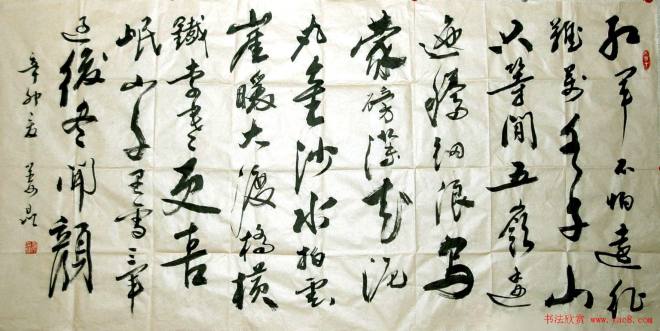 红军不怕遠征
難萬水千山
只等間五嶺逶
迤騰細浪烏
蒙磅礴走泥
丸金沙水拍雲
崖暖大渡橋橫
鐵索寒更喜
岷山千里雪三軍
过後尽開顔
辛卯夏
书法欣赏 www.yac8.com